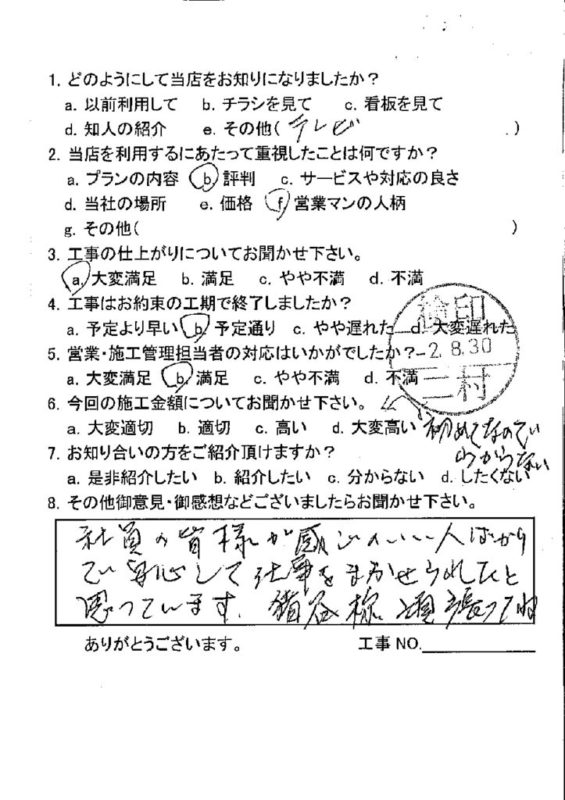 1. どのようにして当店をお知りになりましたか？
a. 以前利用して b. チラシを見て c. 看板を見て
d. 知人の紹介 e. その他( テレビ )
2. 当店を利用するにあたって重視したことは何ですか？
a. プランの内容 b. 評判 c. サービスや対応の良さ
d. 当社の場所 e. 価格 f. 営業マンの人柄
g. その他( )
3. 工事の仕上がりについてお聞かせ下さい。
a. 大変満足 b. 満足 c. やや不満 d. 不満
4. 工事はお約束の工期で終了しましたか？
a. 予定より早い b. 予定通り c. やや遅れた d. 大変遅れた
検印
2.8.30
三村
5. 営業・施工管理担当者の対応はいかがでしたか？
a. 大変満足 b. 満足 c. やや不満 d. 不満
6. 今回の施工金額についてお聞かせ下さい。
a. 大変適切 b. 適切 c. 高い d. 大変高い
初めてなので
わからない
7. お知り合いの方をご紹介頂けますか？
a. 是非紹介したい b. 紹介したい c. 分からない d. したくない
8. その他御意見・御感想などございましたらお聞かせ下さい。
社員の皆様が感じのいい人ばかり
で安心して仕事をまかせられたと
思っています. 様 頑張ってね
ありがとうございます。 工事 NO.